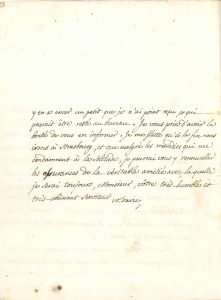 y en a encor un petit que je n'ai point reçu, et qui
pourait être resté au bureau. Je vous prie d'avoir la
bonté de vous en informer. Je me flatte qu'à la fin nous
irons à Strasbourg, et que malgré les maladies qui me
condamnent à la solitude, je pourrai vous y renouveller
les assurances de la véritable amitié avec laquelle
je serai toujours, Monsieur, votre très humble et
très obéissant serviteur
voltaire